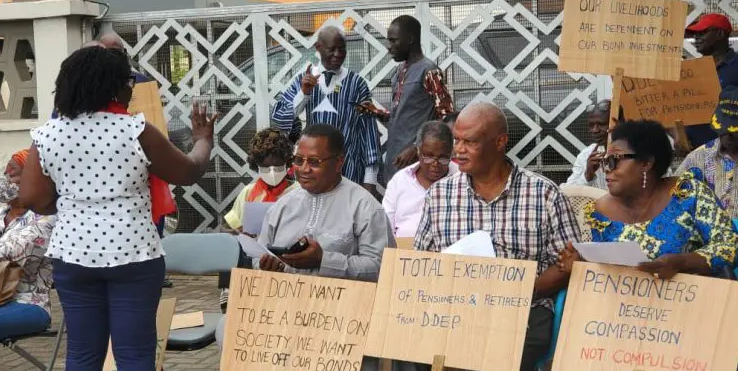 OUR LIVELIHOODS
ARE DEPENDENT ON
OUR BOND INVESTMENT
BITTER A PILL
FOR PENSIONERS
WE DON'T WANT
TO BE A BURDEN ON
SOCIETY. WE WANT
TO LIVE OFF OUR BONDS
TOTAL EXEMPTION
OF PENSIONERS & RETIREES
FROM DDEP
PENSIONERS
DESERVE
COMPASSION
NOT COMPULSION